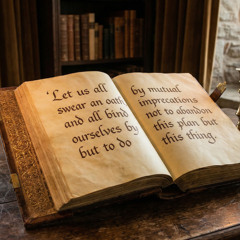 'Let us all
swear an oath
and all bind
ourselves by
but to do
by mutual
imprecations
not to abandon
this plan but
this thing.